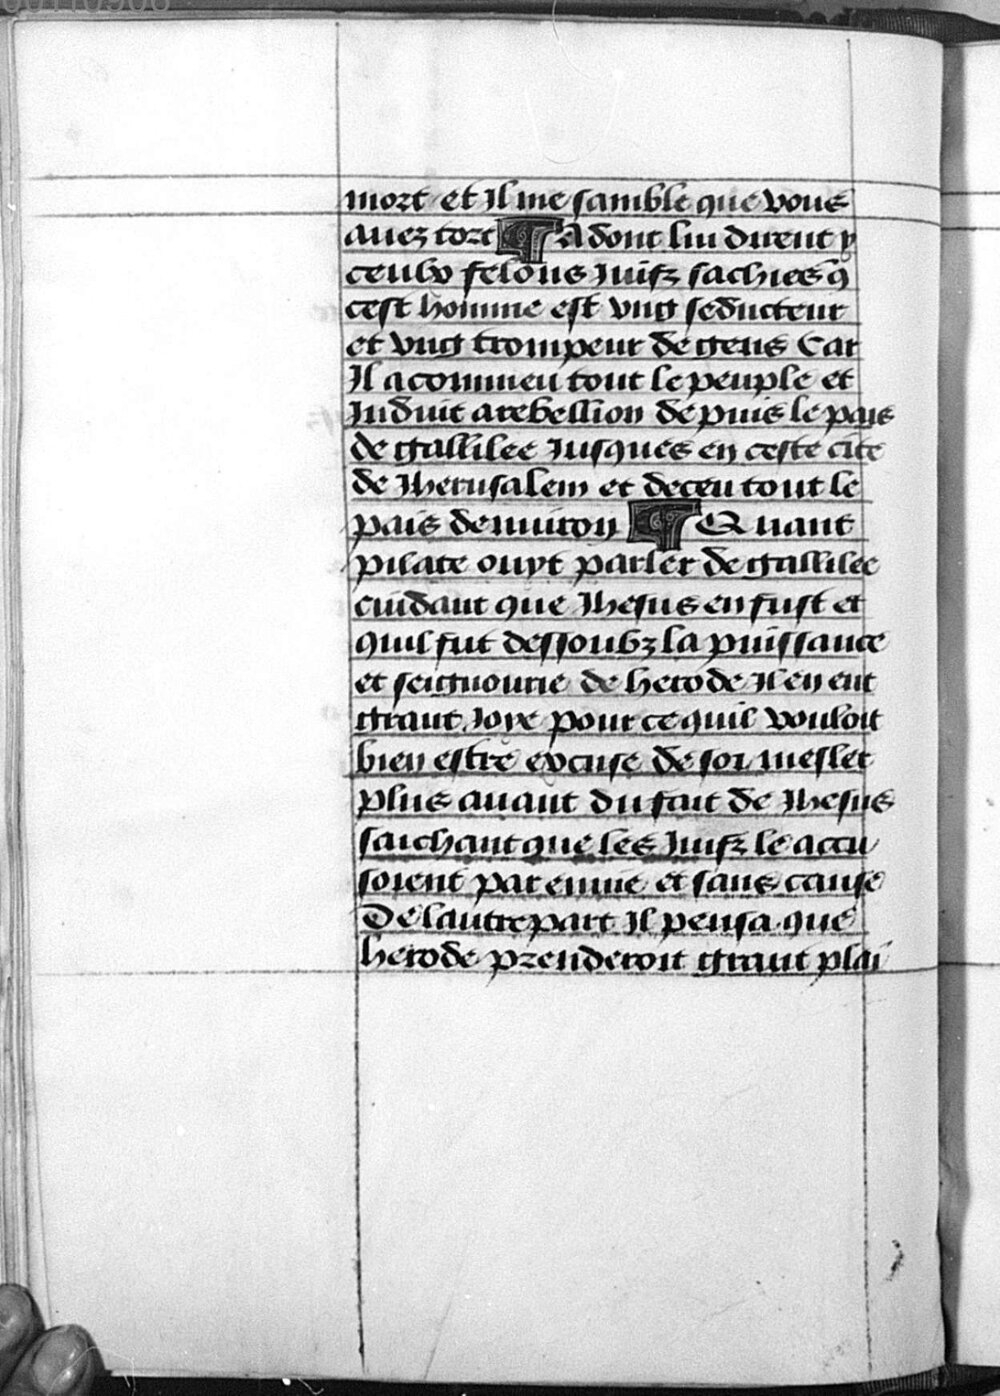 mort et Il me samble que vous
auez tort ¶ Adont lui dirent y
ceulx felons Juifz sachies q̄
cest homme est vng seducteur
et vng trompeur de gens Car
Il a commeu tout le peuple et
Induit a rebellion depuis le pais
de gallilee Jusques en ceste cite
de Jherusalem et deceu tout le
pais denuiron ¶ Quant
pilate ouyt parler de gallilee
cuidant que Jhesus en fust et
quil fut dessoubz la puissance
et seignourie de herode Il en eut
grant Joye pour ce quil vouloit
bien estre excuse de soi mesler
plus auant du fait de Jhesus
saichant que les Juifz le accu
soient par enuie et sans cause
De lautre part Il pensa que
herode prenderoit grant plai